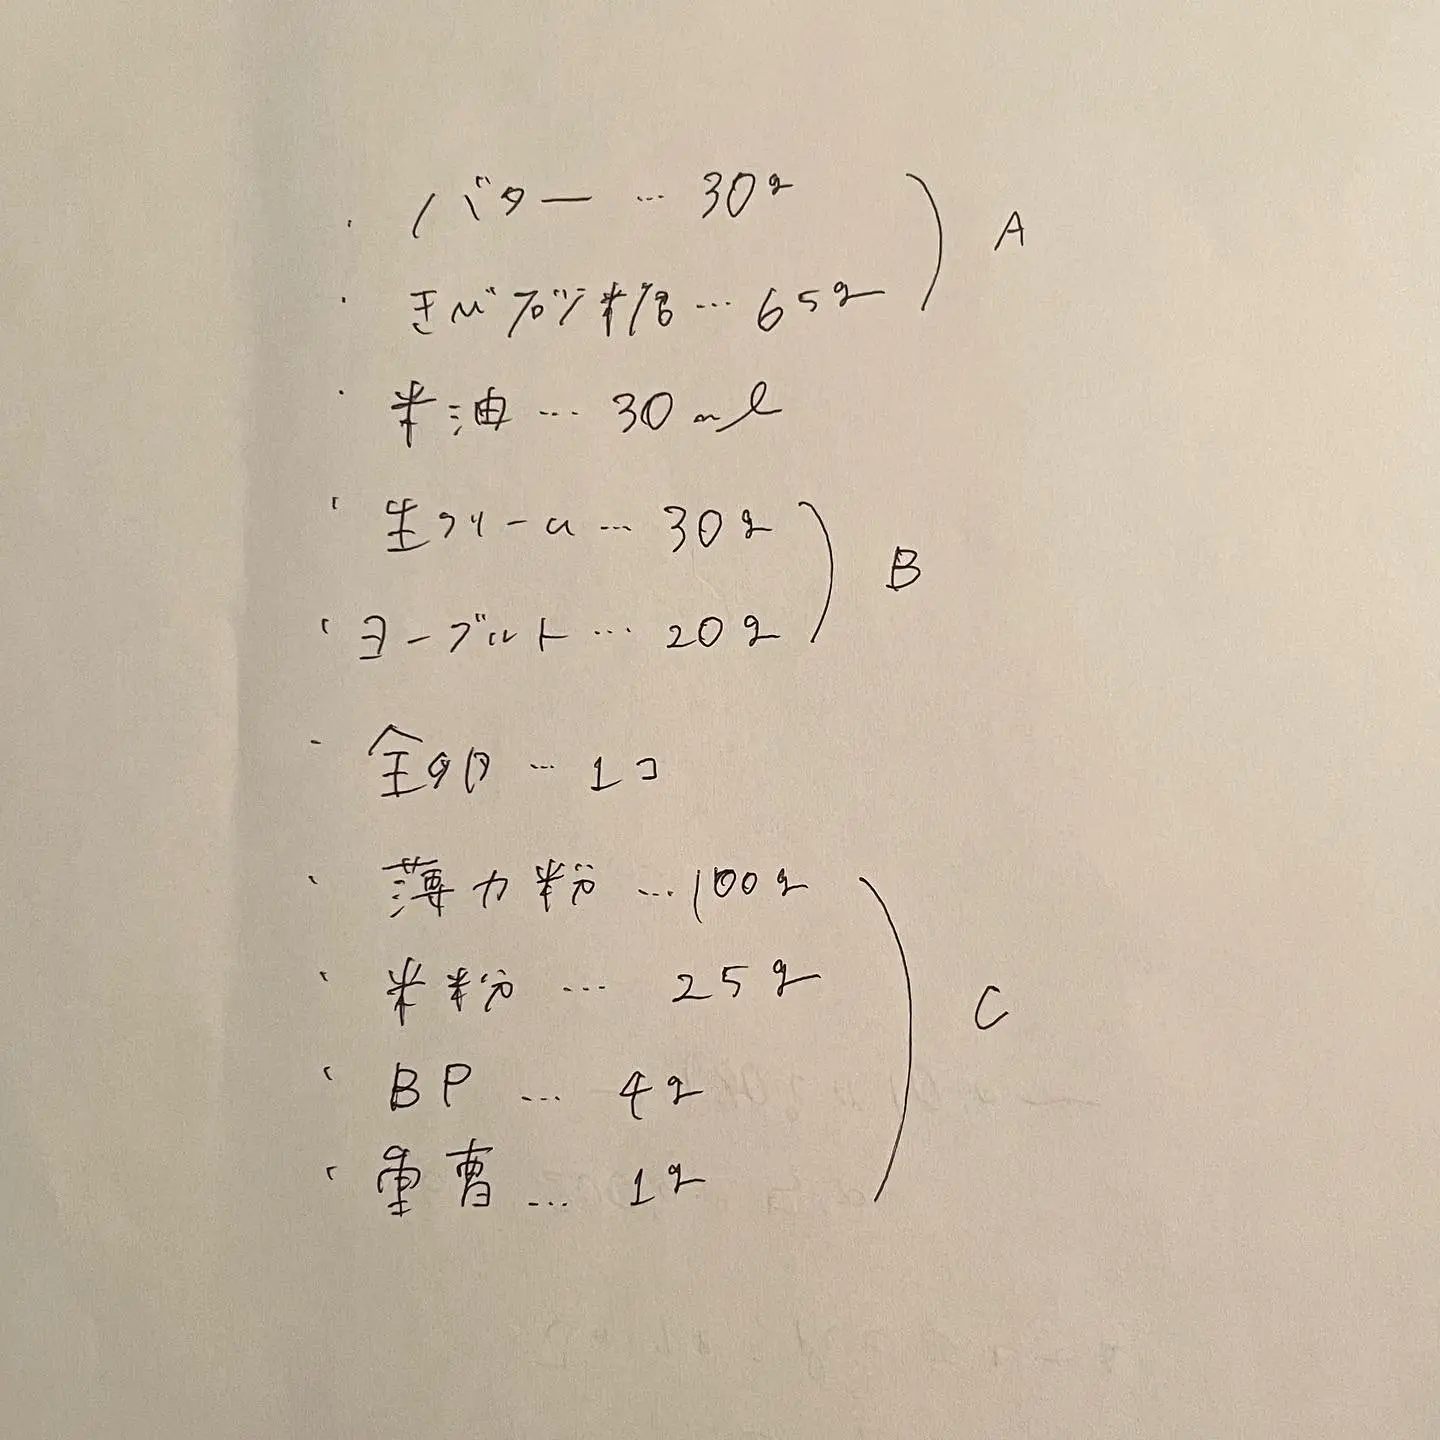 ・バター … 30g ) A
・きびブドウ糖 … 65g
・米油 … 30ml
・生クリーム … 30g ) B
・ヨーグルト … 20g
・全卵 … 1コ
・薄力粉 … 100g ) C
・米粉 … 25g
・BP … 4g
・重曹 … 1g